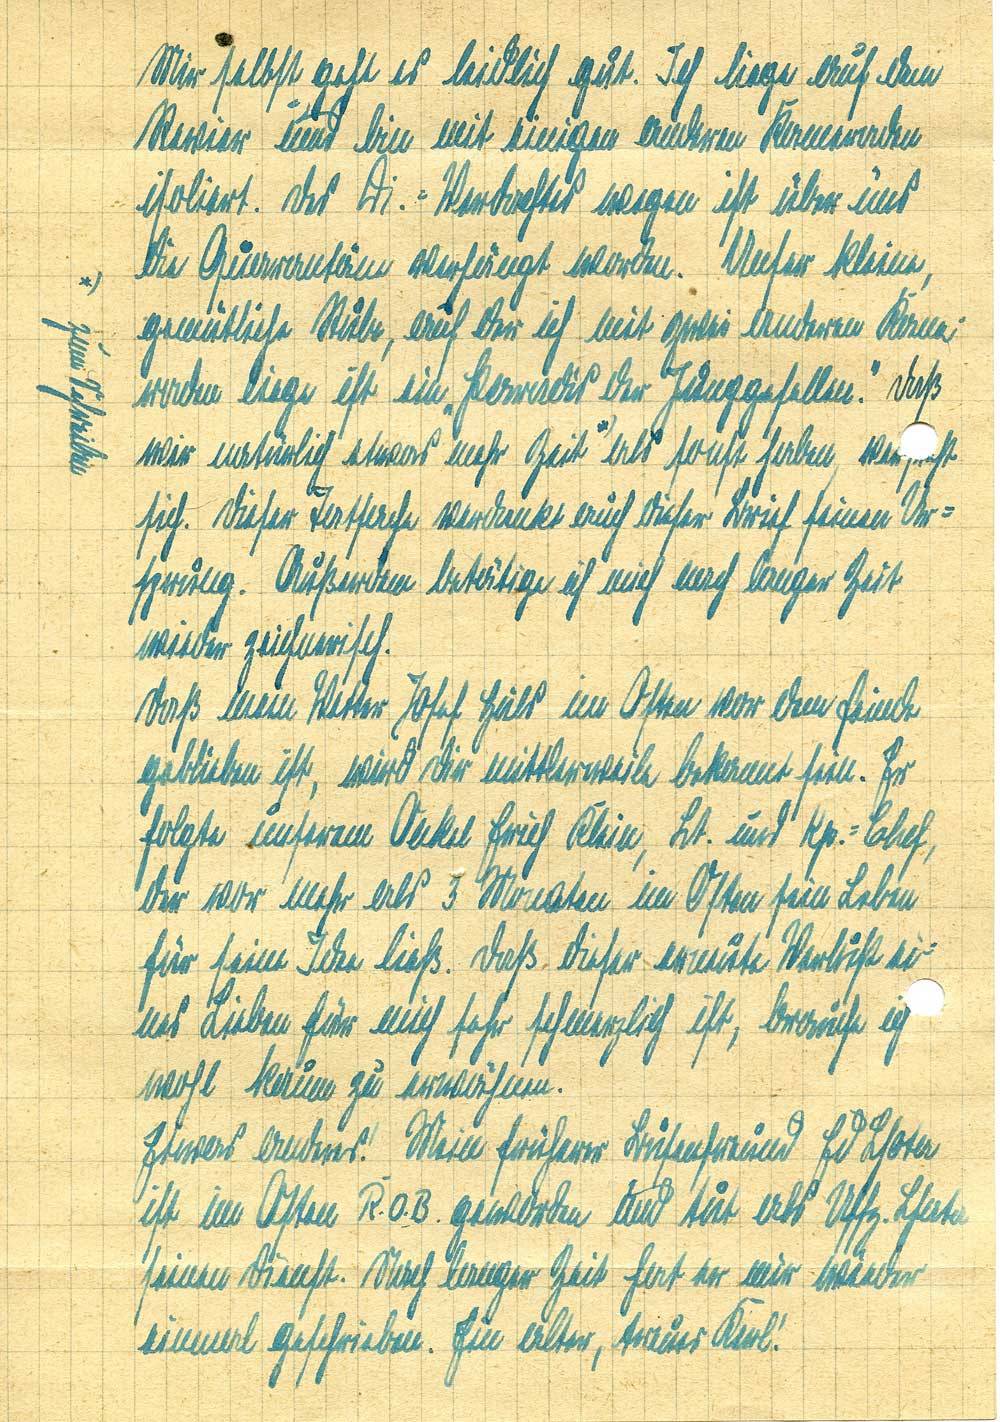 Mir selbst geht es leidlich gut. Ich liege auf dem
Revier und bin mit einigen anderen Kameraden
isoliert. Des Di.=Verdachtes wegen ist über uns
die Quarantäne verhängt worden. Unser kleine,
gemütliche Stube, auf der ich mit zwei anderen Kame-
raden liege ist ein „Paradis der Junggesellen." Daß
wir natürlich etwas mehr Zeit *) als sonst haben, versteht
sich. Dieser Tatsache verdankt auch dieser Brief seinen Ur=
sprung. Außerdem betätige ich mich nach langer Zeit
wieder zeichnerisch.
Daß mein Vetter Josef Hüls im Osten vor dem Feinde
geblieben ist, wird Dir mittlerweile bekannt sein. Er
folgte unserem Onkel Erich Klein, Lt. und Kp.=Chef,
der vor mehr als 3 Monaten im Osten sein Leben
für seine Idee ließ. Daß dieser erneute Verlust ei-
nes Lieben für mich sehr schmerzlich ist, brauche ich
wohl kaum zu erwähnen.
Etwas anderes! Mein früherer Busenfreund Ed
ist im Osten R.O.B. geworden und tut als Uffz.
seinen Dienst. Nach langer Zeit hat er mir wieder
einmal geschrieben. Ein alter, treuer Kerl!
*) zum Schreiben